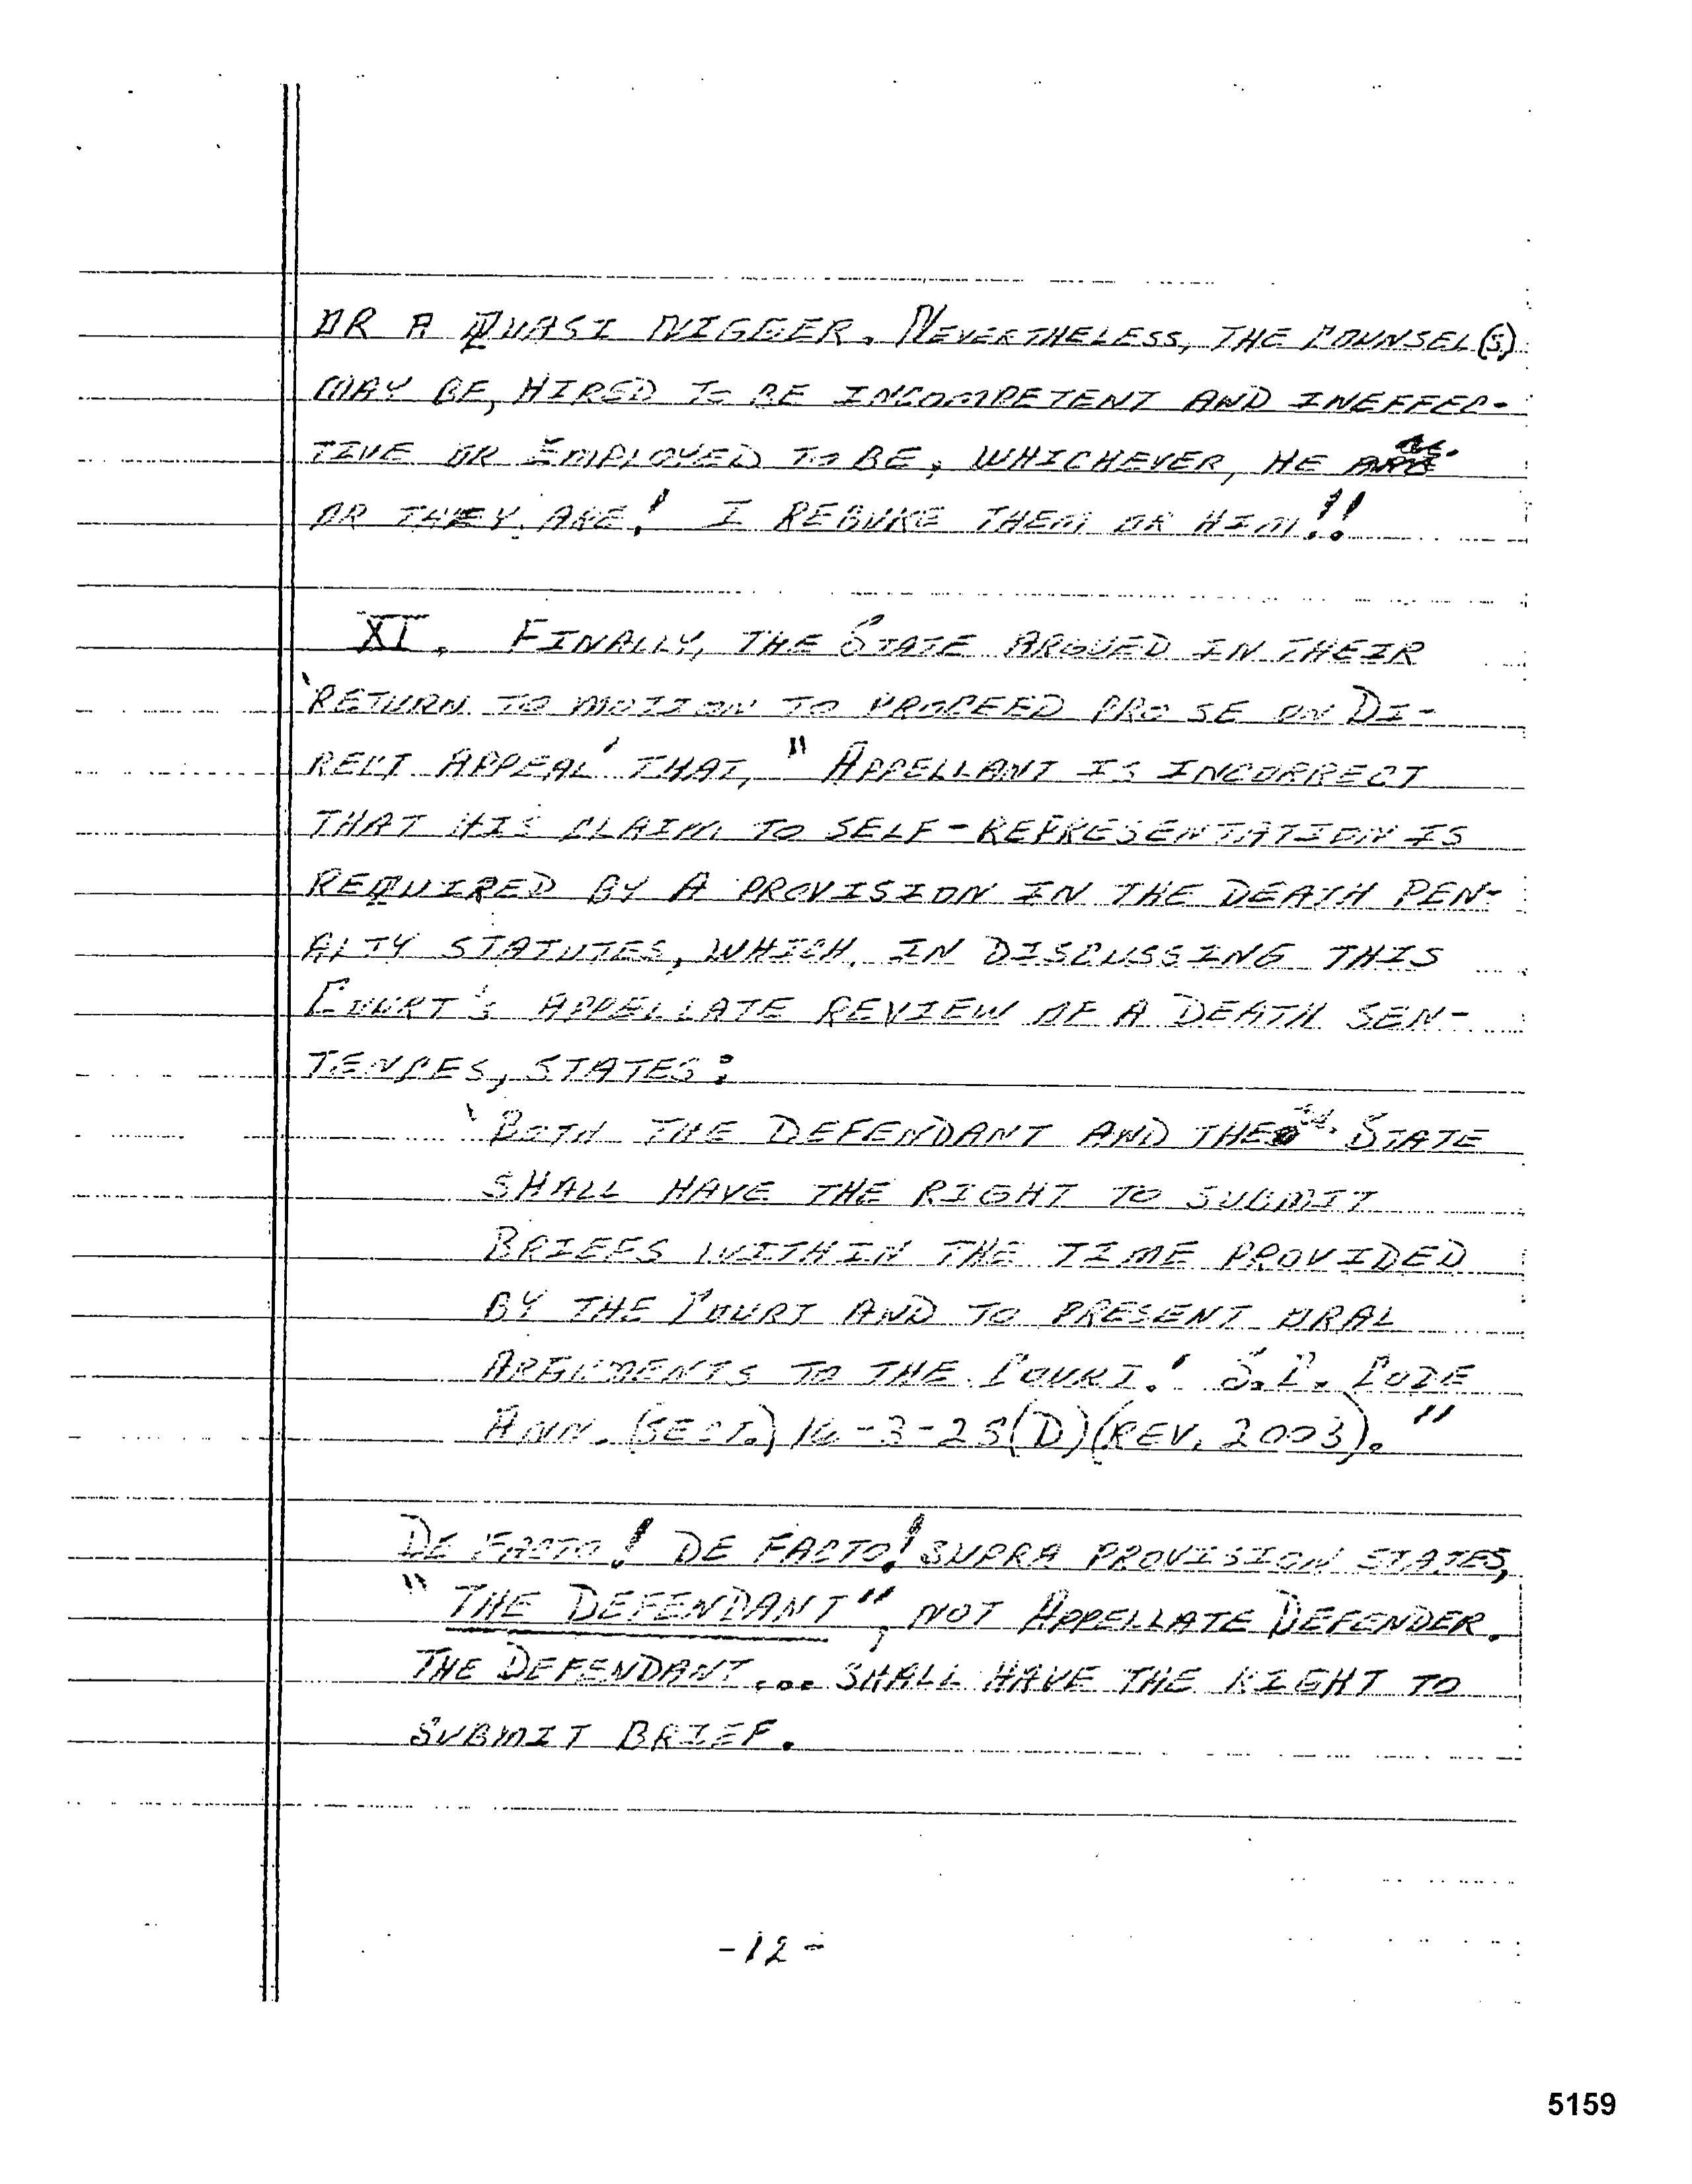 OR A QUASI NIGGER. NEVERTHELESS, THE COUNSEL(S)
MAY BE, HIRED TO BE INCOMPETENT AND INEFFEC-
TIVE OR EMPLOYED TO BE, WHICHEVER, HE
OR THEY ARE! I REBUKE THEM OR HIM!!
XI. FINALLY, THE STATE ARGUED IN THEIR
'RETURN TO MOTION TO PROCEED PRO SE ON DI-
RECT APPEAL' THAT, "APPELLANT IS INCORRECT
THAT HIS CLAIM TO SELF-REPRESENTATION IS
REQUIRED BY A PROVISION IN THE DEATH PEN-
ALTY STATUTES, WHICH, IN DISCUSSING THIS
COURT'S APPELLATE REVIEW OF A DEATH SEN-
TENCES, STATES:
'BOTH THE DEFENDANT AND THE STATE
SHALL HAVE THE RIGHT TO SUBMIT
BRIEFS WITHIN THE TIME PROVIDED
BY THE COURT AND TO PRESENT ORAL
ARGUMENTS TO THE COURT.' S.C. CODE
ANN. (SECT.) 16-3-25(D)(REV. 2003)."
DE FACTO! DE FACTO! SUPRA PROVISION STATES,
"THE DEFENDANT", NOT APPELLATE DEFENDER.
THE DEFENDANT... SHALL HAVE THE RIGHT TO
SUBMIT BRIEF.
-12-
5159